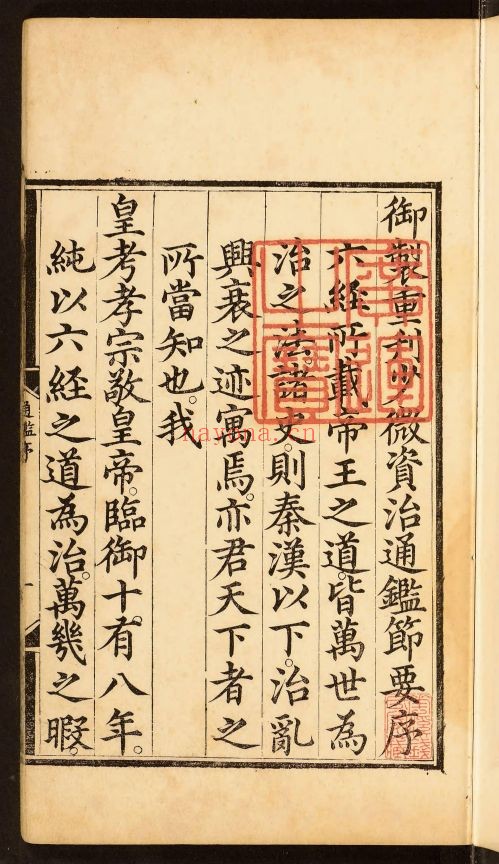 御製重刊少微資治通鑑節要序
六経所載帝王之道。皆萬世為
治之法。諸史。則秦漢以下。治亂
興衰之迹寓焉。亦君天下者之
所當知也。我
皇考孝宗敬皇帝。臨御十有八年。
純以六経之道為治。萬幾之暇。
通鑑序
一